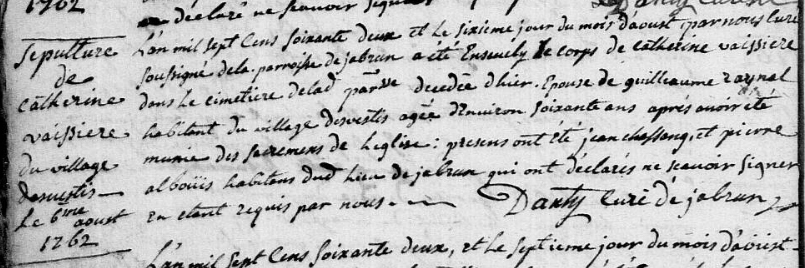 1762
déclaré ne scavoir signer
Sepulture
de
Catherine
vaissiere
du village
desvestis
Le 6me aoust
1762
L'an mil sept Cens soixante deux et le sixième jour du mois daoust par nous Curé
soussigné de la parroisse de jabrun a été Ensevely le corps de catherine vaissiere
dans le cimetière de lad parsse decedée d'hier. Epouse de guillaume raynal
habitant du village desvestis agée d'Environ soixante ans après avoir été
munie des sacremens de leglise: presens ont été jean chassang, et pierre
albouis habitans dud lieu de jabrun qui ont déclarés ne scavoir signer
En etant requis par nous.
Danty Curé de jabrun
L'an mil sept Cens soixante deux, et le septieme jour du mois d'aoust